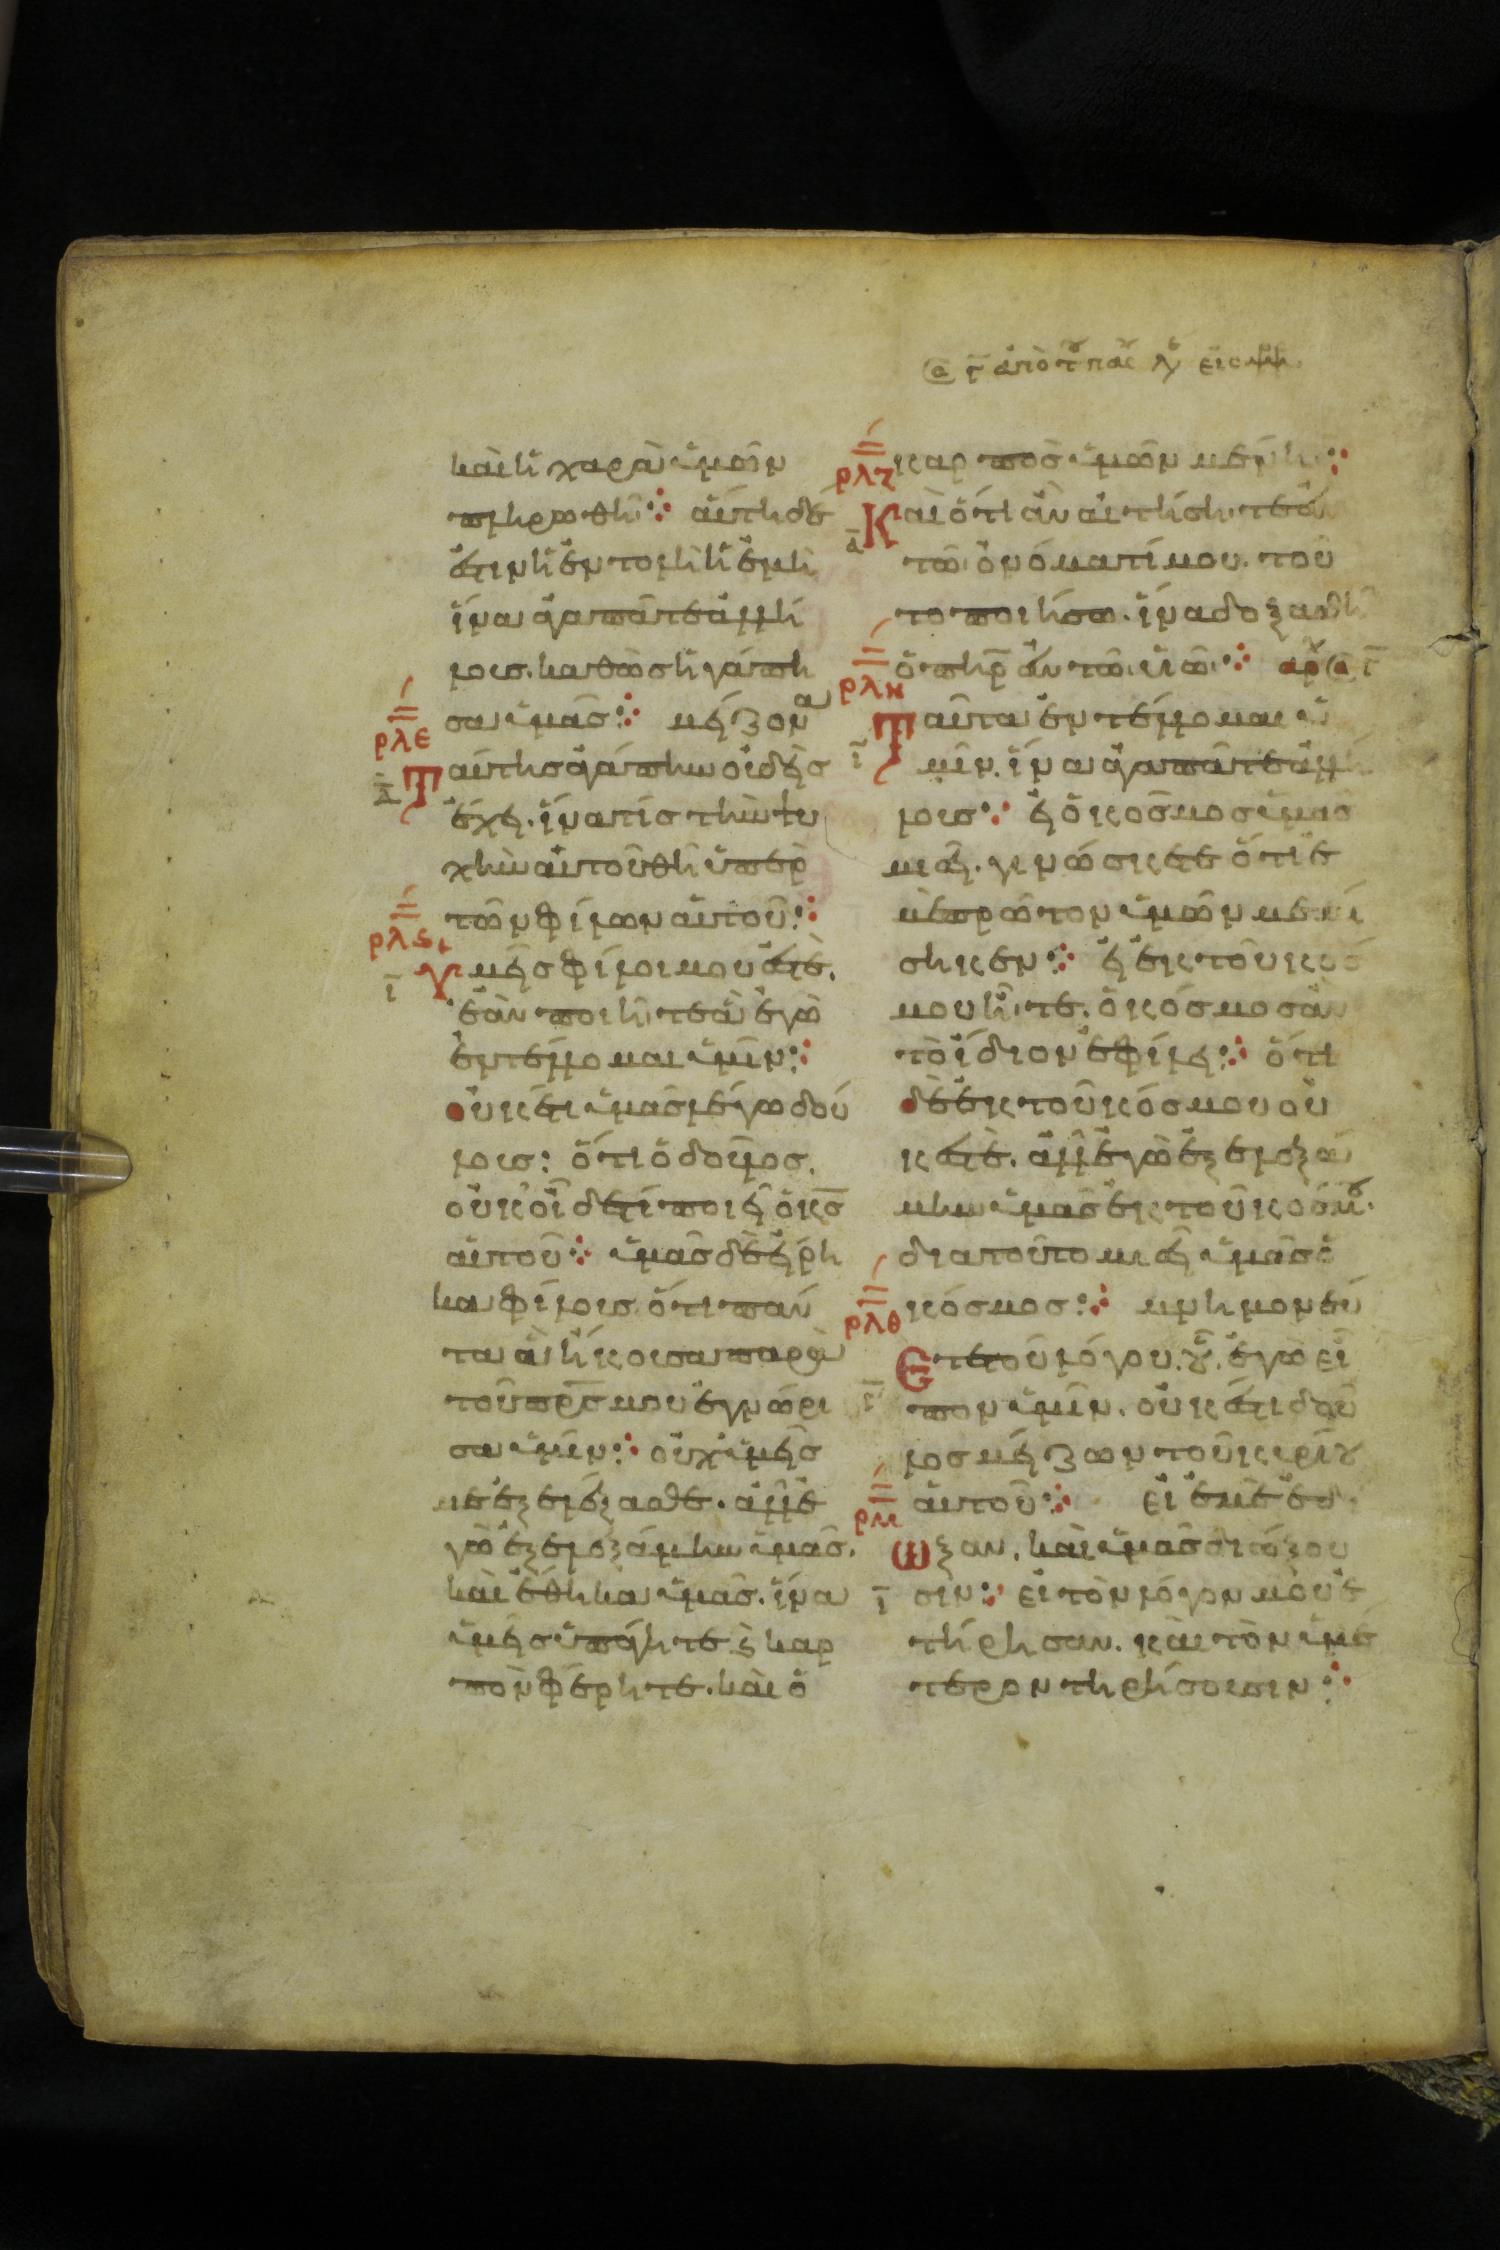 καὶ ἡ χαρὰ ὑμῶν
πληρωθῆ· αὕτη δέ
ἐστιν ἡ ἐντολὴ ἡ ἐμὴ
ἵνα ἀγαπᾶτε ἀλλή
λους. καθὼς ἠγάπη
σα ὑμᾶς· μείζονα
ρλε
ταύτης ἀγάπην οὐδεὶς
ἔχει. ἵνα τίς τὴν ψυ
χὴν αὐτοῦ θῆ ὑπὲρ
τῶν φίλων αὐτοῦ·
ρλς
ὑμεῖς φίλοι μου ἐστὲ.
ἐὰν ποιῆτε ἃ ἐγὼ
ἐντέλλομαι ὑμῖν·
οὐκέτι ὑμᾶς λέγω δού
λους· ὅτι ὁ δοῦλος.
οὐκ οἶδε τί ποιεῖ ὁ κς
αὐτοῦ· ὑμᾶς δὲ εἴρη
κα φίλους ὅτι πάν
τα ἃ ἤκουσα παρὰ
τοῦ πρς μου ἐγνώρι
σα ὑμῖν· οὐχ ὑμεῖς
με ἐξελέξασθε. ἀλλ ἐ
γὼ ἐξελεξάμην ὑμᾶς.
καὶ ἔθηκα ὑμᾶς. ἵνα
ὑμεῖς ὑπάγητε καὶ καρ
πὸν φέρητε. καὶ ὁ
καρπὸς ὑμῶν μένη·
ρλζ
Καὶ ὅτι ἂν αἰτήσητε ἐν
τῶ ὀνόματί μου. τοῦ
το ποιήσω. ἵνα δοξασθῆ
ὁ πηρ ἐν τῶ υἱῶ·
ρλη
Ταῦτα ἐντέλλομαι ὑ
μῖν. ἵνα ἀγαπᾶτε ἀλλή
λους· εἰ ὁ κόσμος ὑμᾶς
μισεῖ. γινώσκετε ὅτι ἐ
μὲ πρῶτον ὑμῶν μεμί
σηκεν· εἰ ἐκ τοῦ κόσ
μου ἦτε. ὁ κόσμος ἂν
τὸ ἴδιον ἐφίλει· ὅτι
δὲ ἐκ τοῦ κόσμου οὐ
κ ἐστὲ. ἀλλ ἐγὼ ἐξελεξά
μην ὑμᾶς ἐκ τοῦ κόσμου.
διατοῦτο μισεῖ ὑμᾶς ὁ
κόσμος· μνημονεύ
ρλθ
ετε τοῦ λόγου. οὗ ἐγὼ εἶ
πον ὑμῖν. οὐκ ἔστι δοῦ
λος μείζων τοῦ κυρίου
αὐτοῦ· εἰ ἐμὲ ἐδί
ρμ
ωξαν. καὶ ὑμᾶς διώξου
σιν· εἰ τὸν λόγον μου ἐ
τήρησαν. καὶ τὸν ὑμέ
τερον τηρήσουσιν·